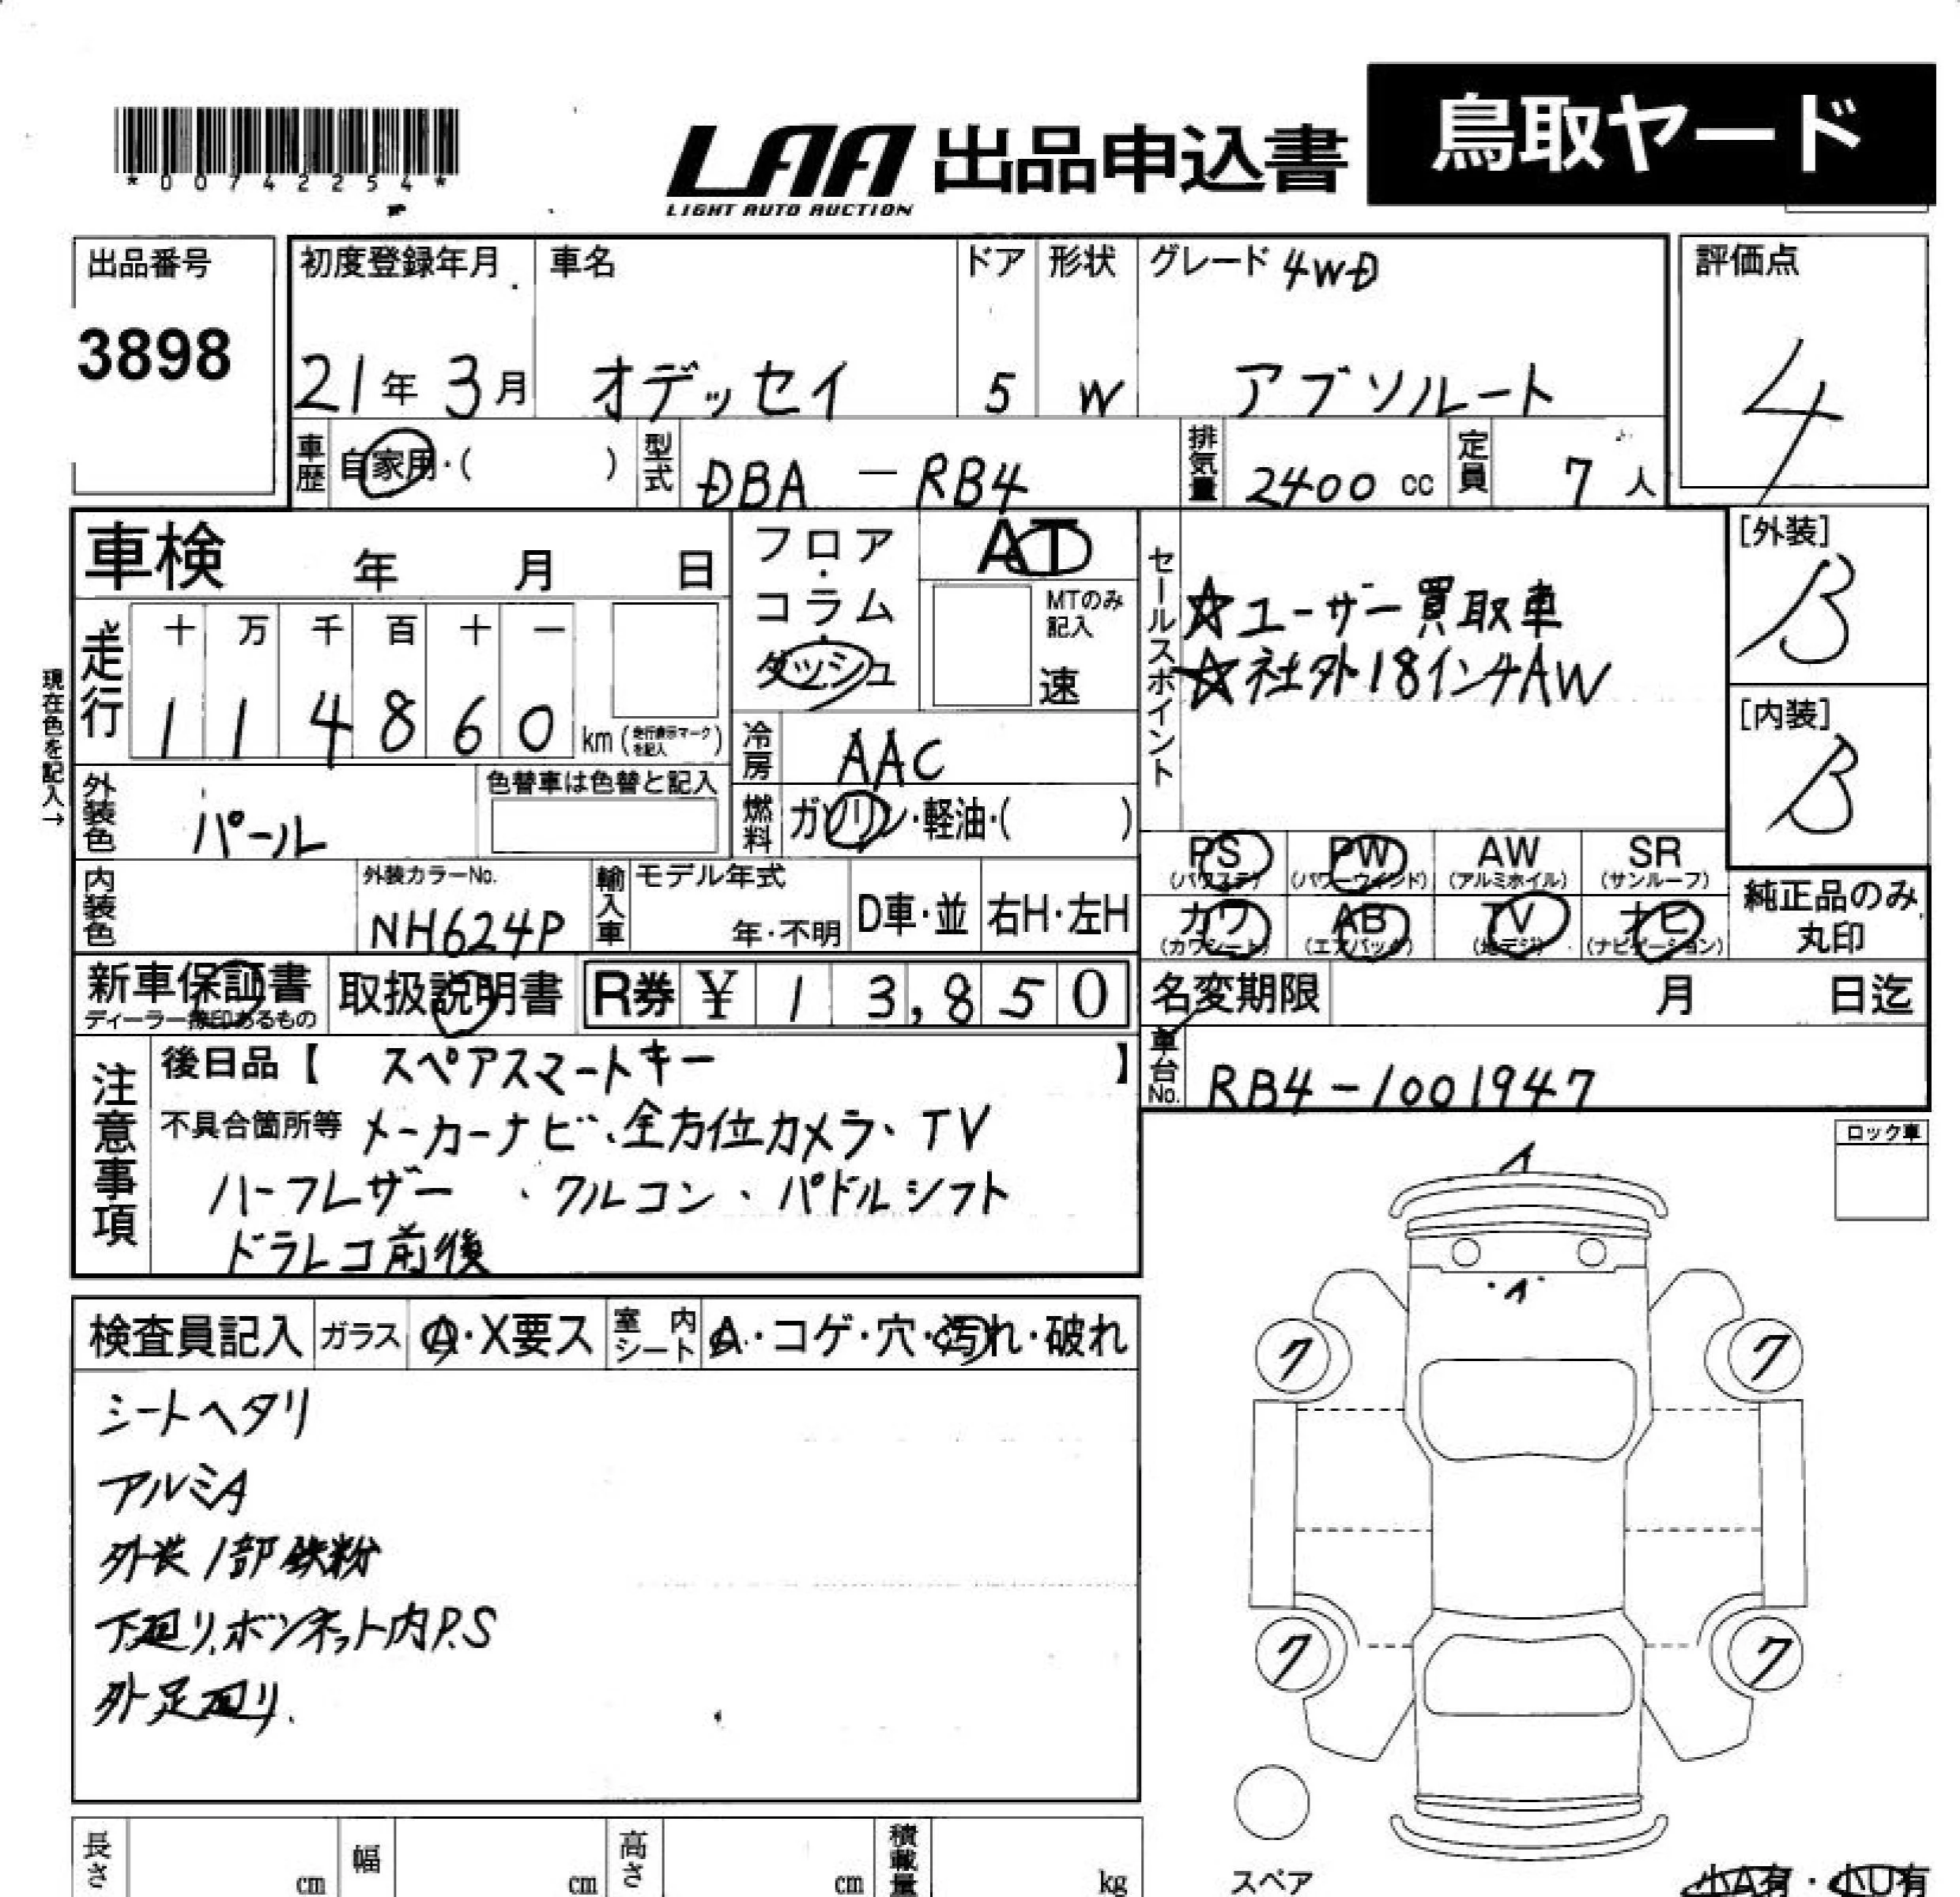 *00742254*
LAA 出品申込書 鳥取ヤード
LIGHT AUTO AUCTION
出品番号
3898
初度登録年月
21年 3月
車名
オデッセイ
ドア
5
形状
W
グレード 4WD
アブソルート
評価点
4
車歴 自家用・( )
型式 DBA-RB4
排気量 2400 cc
定員 7 人
車検 年 月 日
走行
十 万 千 百 十 一
1 1 4 8 6 0 km (走行表示マークを記入)
現在色を記入→
フロア・コラム・ダッシュ
AT
MTのみ記入
速
冷房 AAC
燃料 ガソリン・軽油・( )
セールスポイント
☆ユーザー買取車
☆社外18インチAW
[外装]
B
[内装]
B
外装色 パール
色替車は色替と記入
内装色
外装カラーNo.
NH624P
輸入車
モデル年式
年・不明
D車・並
右H・左H
PS (パワステ)
PW (パワーウインド)
AW (アルミホイル)
SR (サンルーフ)
カワ (カワシート)
AB (エアバック)
TV (地デジ)
ナビ (ナビゲーション)
純正品のみ丸印
新車保証書
ディーラー捺印あるもの
取扱説明書
R券 ¥ 13,850
名変期限 月 日迄
車台No. RB4-1001947
注意事項
後日品【 スペアスマートキー 】
不具合箇所等 メーカーナビ、全方位カメラ、TV
ハーフレザー、クルコン、パドルシフト
ドラレコ前後
ロック車
検査員記入
ガラス A・X要ス
室内シート A・コゲ・穴・汚れ・破れ
シートヘタリ
アルミA
外装1部鉄粉
下廻リ,ボンネット内P.S
外足廻リ.
ク ク
ク ク
スペア
小A有・小U有
長さ cm
幅 cm
高さ cm
積載量 kg